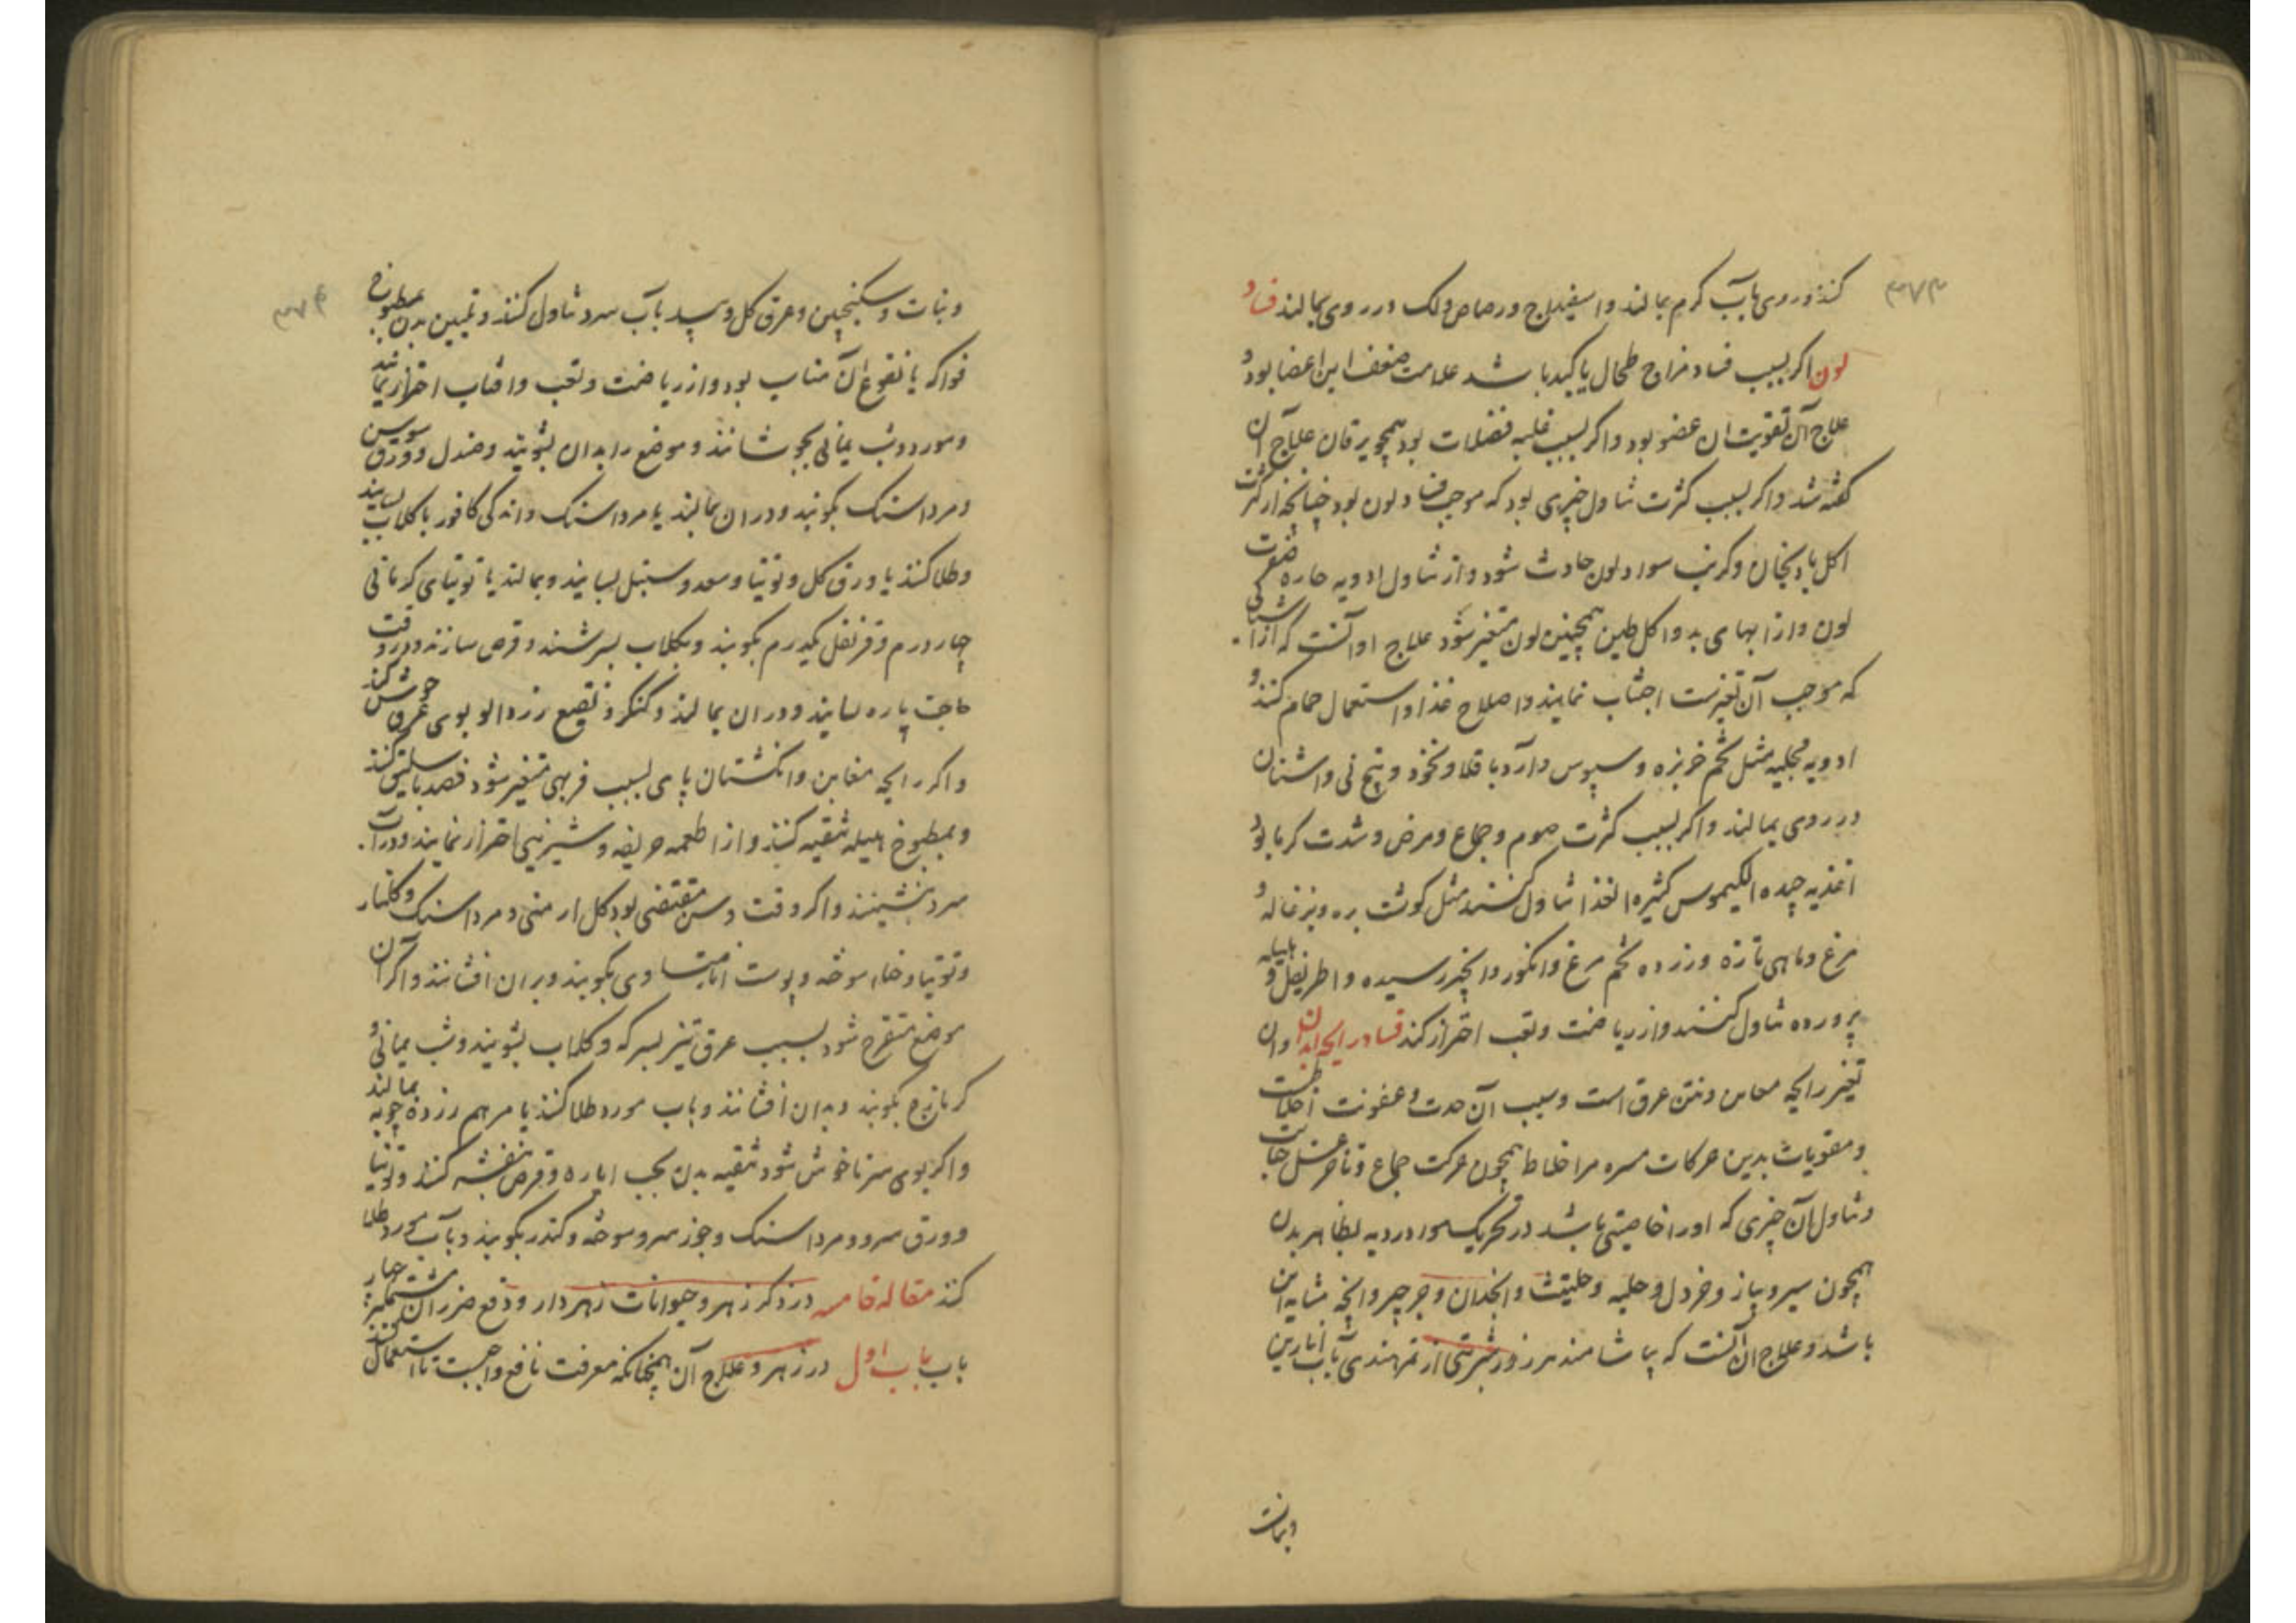 ۳۷۳
کنند و روی بآب کرم بمالند و اسفیداج و رصاص و لک در روی بمالند فساد
لون اکر بسبب فساد مزاج طحال یا کبد باشد علامت ضعف این اعضا بود و
علاج آن تقویت ان عضو بود و اکر بسبب غلبه فضلات بود همچو یرقان علاج آن
کفته شد و اکر بسبب کثرت تناول چیزی بود که موجب فساد لون بود چنانچه از کثرت
اکل بادنجان و کرنب سواد لون حادث شود و از تناول ادویه حاره صفرت
لون و از ابهای بد و اکل طین همچنین لون متغیر شود علاج او آنست که از اشیائی
که موجب آن تغیرست اجتناب نمایند و اصلاح غذا و استعمال حمام کنند و
ادویه مجلیه مثل تخم خربزه و سپوس و آرد باقلا و نخود و بیخ نی و اشنان
در روی بمالند و اکر بسبب کثرت صوم و جماع و مرض و شدت کرما بود
اغذیه جیده الکیموس کثیره الغذا تناول کنند مثل کوشت بره و بزغاله و
مرغ و ماهی تازه و زرده تخم مرغ و انکور و انجیر رسیده و اطریفل و هلیله
پرورده تناول کنند و از ریاضت و تعب احتراز کنند فساد رایحه ابدان و ان
تغیر رایحه مغابن و نتن عرق است و سبب آن حدت و عفونت اخلاطست
و مقویات بدین حرکات مر اخلاط همچون حرکت جماع و تاخر غسل جنابت
و تناول آن چیزی که او را خاصیتی باشد در تحریک مواد ردیه بظاهر بدن
همچون سیر و پیاز و خردل و حلبه و حلتیت و انجدان و جرجیر و انچه مشابه این
باشد و علاج آن آنست که بیاشامند هر روز شربتی از تمرهندی بآب انارین
و نبات
۳۷۴
و نبات و سکنجبین و عرق کل و بید بآب سرد تناول کنند و تلیین بدن بمطبوخ
فواکه یا نقوع آن مناسب بود و از ریاضت و تعب و افتاب احتراز نمایند
و مورد و شب یمانی بجوشانند و موضع را بدان بشویند و صندل و ورق سوسن
و مرداسنک بکوبند و در ان بمالند یا مرداسنک و اندکی کافور با کلاب بسایند
و طلا کنند یا ورق کل و توتیا و سعد و سنبل بسایند و بمالند یا توتیای کرمانی
چهار درم و قرنفل یکدرم بکوبند و بکلاب بسرشند و قرص سازند و در وقت
حاجت پاره بسایند و در ان بمالند و کنکر و نقیع زردالو بوی عرق خوش کند
و اکر رایحه مغابن و انکشتان پای بسبب فربهی متغیر شود فصد باسلیق کنند
و بمطبوخ هلیله تنقیه کنند و از اطعمه حریفه و شیرینی احتراز نمایند و در آب
سرد نشینند و اکر وقت و سن مقتضی بود کل ارمنی و مرداسنک و کلنار
و توتیا و حناء سوخته و پوست انار متساوی بکوبند و بر ان افشانند و اکر آن
موضع متقرح شود بسبب عرق تیز بسرکه و کلاب بشویند و شب یمانی و
کزمازج بکوبند و بدان افشانند و باب مورد طلا کنند یا مرهم زرده چوبه بمالند
و اکر بوی سر ناخوش شود تنقیه بدن بحب ایاره و قرص بنفشه کنند و توتیا
و ورق سرو و مرداسنک و جوز سرو سوخته و کندر بکوبند و بآب مورد طلا
کنند مقاله خامسه در ذکر زهر و حیوانات زهردار و دفع ضرر ان مشتملبر چهار
باب باب اول در زهر و علاج آن همچنانکه معرفت نافع واجبست تا استعمال کنند